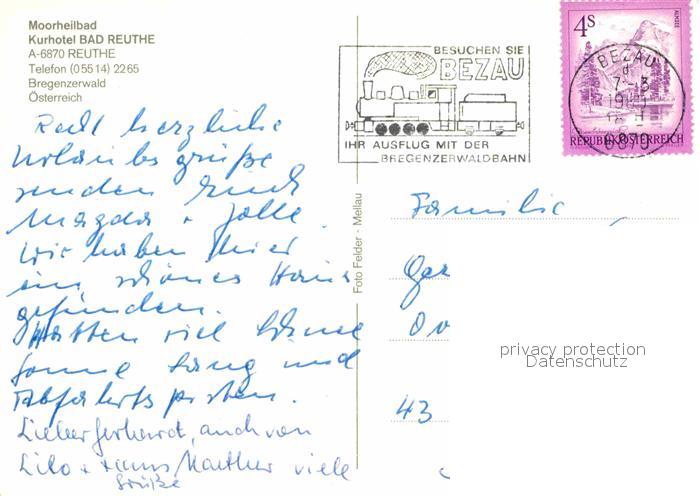 Moorheilbad
Kurhotel BAD REUTHE
A-6870 REUTHE
Telefon (0 55 14) 22 65
Bregenzerwald
Österreich
Recht herzliche
Urlaubsgrüße
senden Euch
Magda +
Wir haben hier
ein schönes Haus
gefunden.
Hatten viel
Sonne Lang und
Abfahrtspisten.
Lieber Gerhardt, auch von
Lilo + Hans viele
Grüße
Foto Felder - Mellau
BESUCHEN SIE
BEZAU
IHR AUSFLUG MIT DER
BREGENZERWALDBAHN
4S
ALMSEE
REPUBLIK ÖSTERREICH
BEZAU
6870
Familie
Ger
Do
43
privacy protection
Datenschutz